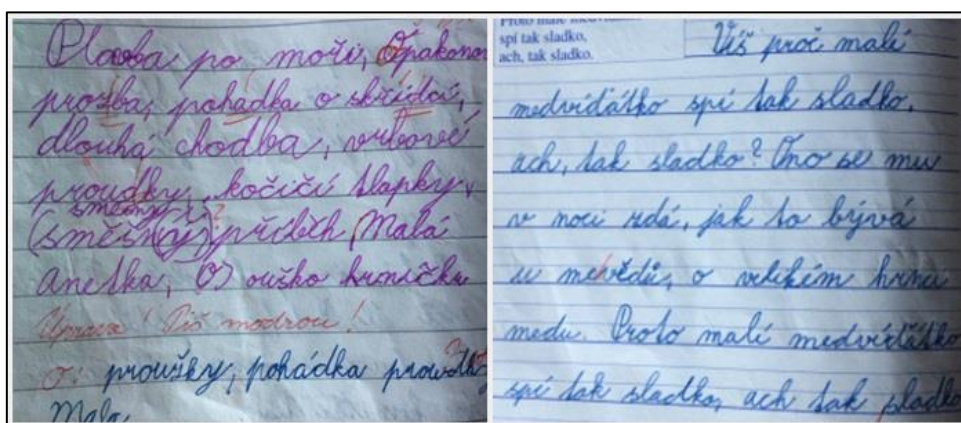 Plavba po moři, Opakovan
prozba, pohadka o skřídcí,
dlouhá chodba, vrbové
proudky, kočičí tlapky,
směšný
(směšný) příběh, Malá
anetka, O ouško hrníčku
Úprava! Piš modrou!
O: proužky, pohádka
Mala
Proto malé
spí tak sladko,
ach, tak sladko.
Víš proč malí
medvíďátko spí tak sladko,
ach, tak sladko? Ono se mu
v noci zdá, jak to bývá
u mevědů, o velikém hrnci
medu. Proto malí medvíďátko
spí tak sladko, ach tak sladko